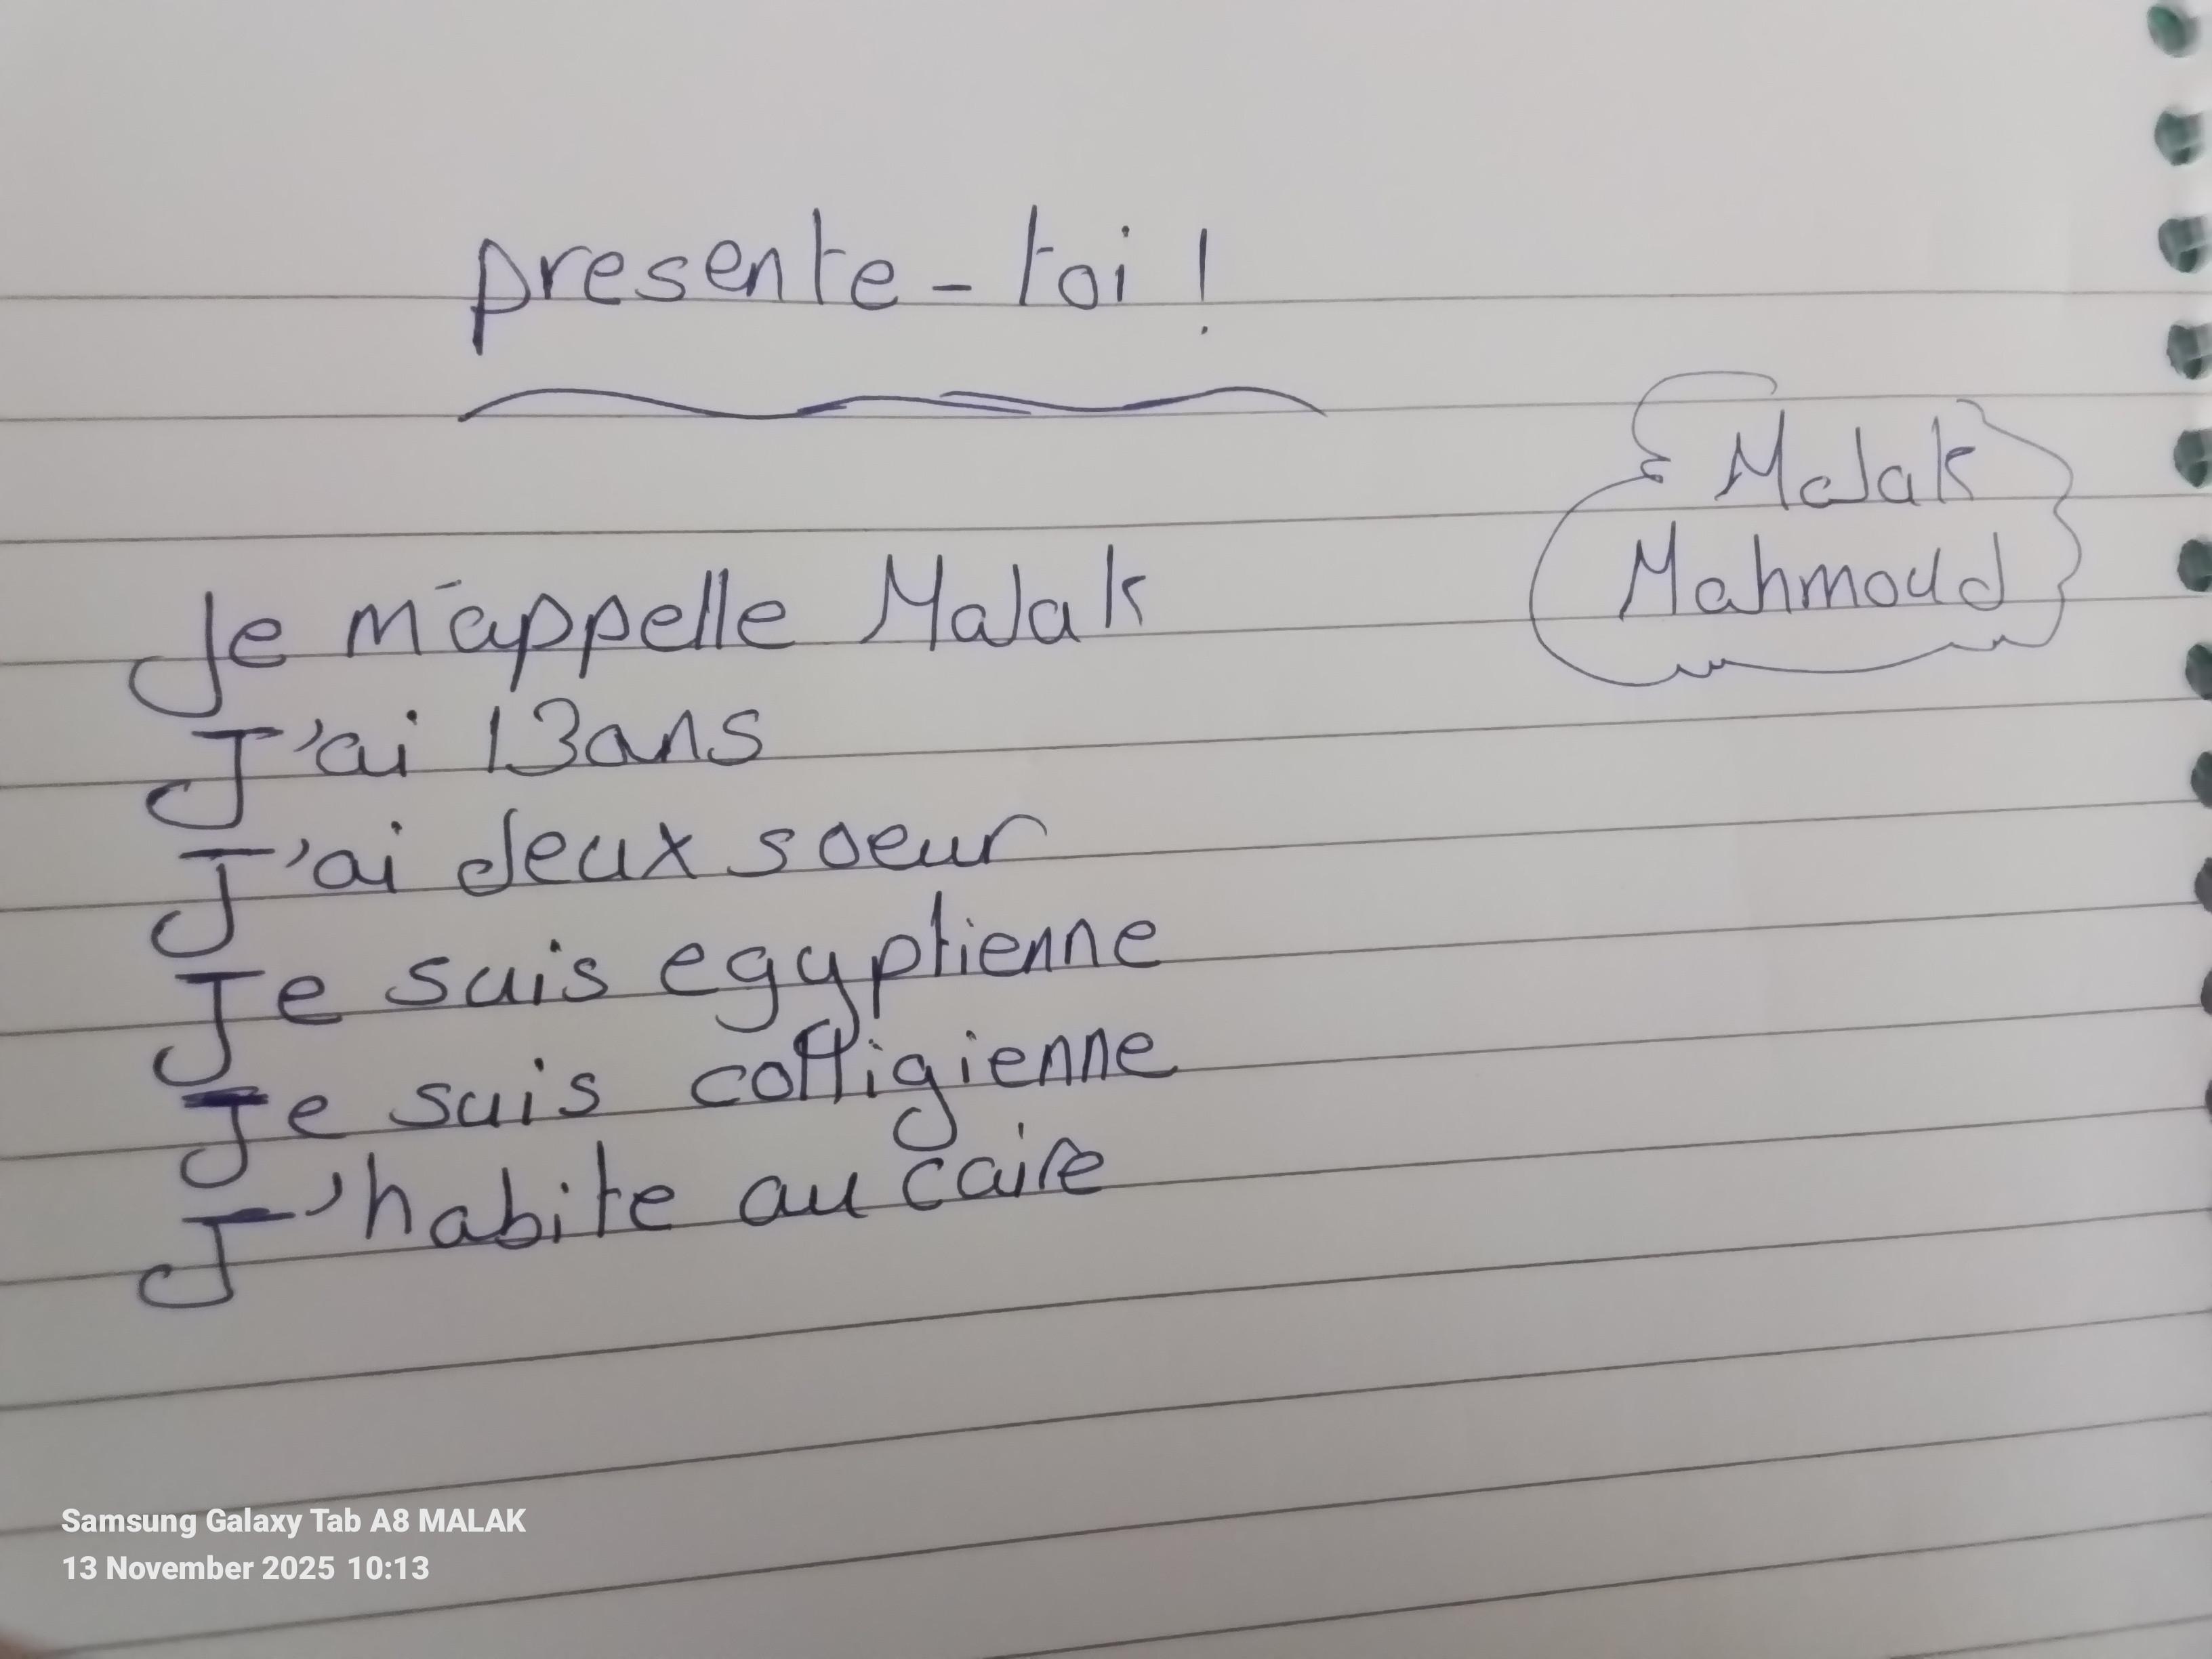 presente-toi !
Malak
Mahmoud
Je m'appelle Malak
J'ai 13ans
J'ai deux soeur
Je suis egyptienne
Je suis colligienne
J'habite au caire
Samsung Galaxy Tab A8 MALAK
13 November 2025 10:13